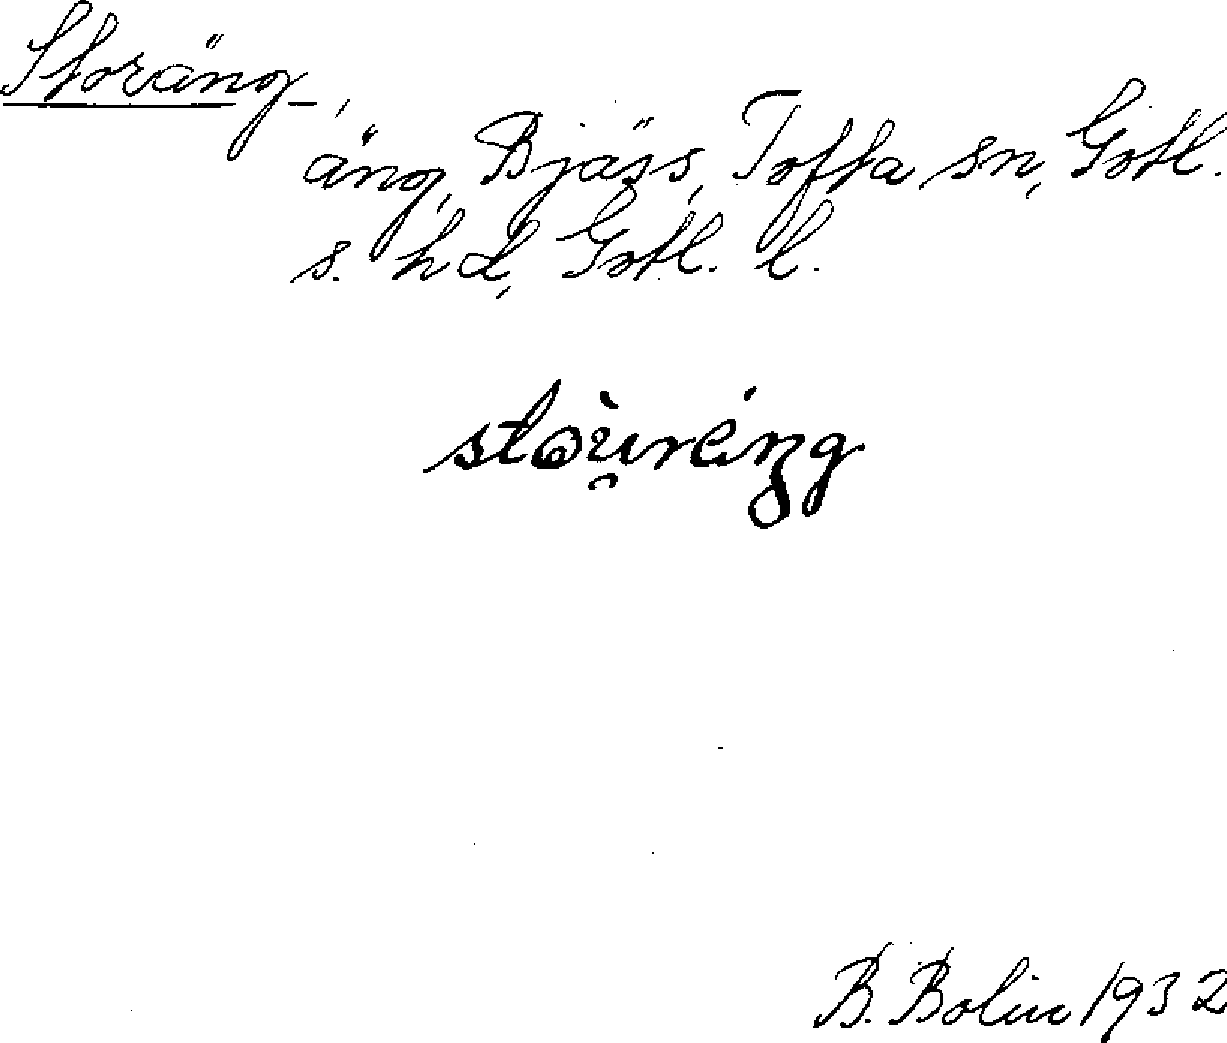 Storäng,
äng, Bjäss, Tofta sn, Gotl.
s. hd, Gotl. l.
B. Bolin 1932